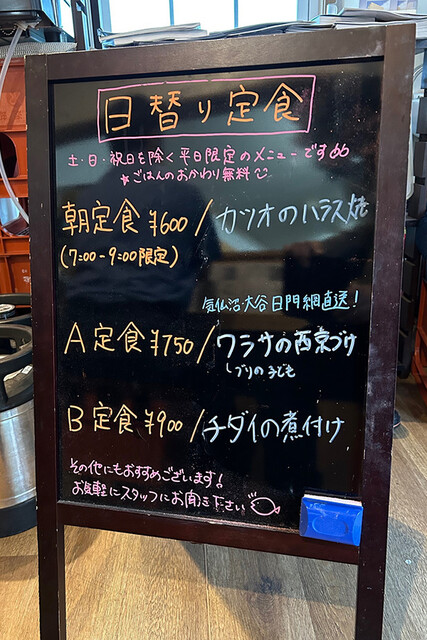 日替り定食
土・日・祝日を除く平日限定のメニューです
★ごはんのおかわり無料
朝定食 ¥600 / カツオのハラス焼
(7:00-9:00限定)
気仙沼大谷日門網直送！
A定食 ¥750 / ワラサの西京づけ
ブリの子ども
B定食 ¥900 / チダイの煮付け
その他にもおすすめございます！
お気軽にスタッフにお聞き下さい